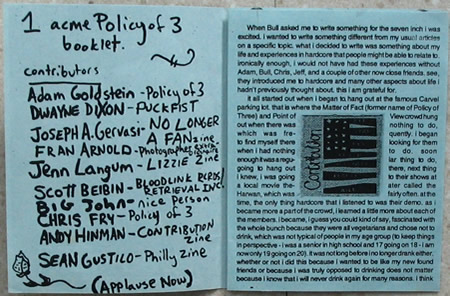 1 acme Policy of 3
booklet.
contributors
Adam Goldstein - Policy of 3
DWAYNE DIXON - FUCKFIST
JOSEPH A. Gervasi - NO LONGER
A FAN zine
FRAN ARNOLD - Photographer
Jenn Langum - Lizzie Zine
Scott Beibin - Bloodlink Rcrds
Retrieval Inc.
Big John - nice Person
CHRIS FRY - Policy of 3
ANDY HINMAN - CONTRIBUTION
Zine
SEAN GUSTILO - Philly Zine
(Applause Now)
When Bull asked me to write something for the seven inch i was
excited. i wanted to write something different from my usual articles
on a specific topic. what i decided to write was something about my
life and experiences in hardcore that people might be able to relate to.
ironically enough, i would not have had these experiences without
Adam, Bull, Chris, Jeff, and a couple of other now close friends. see,
they introduced me to hardcore and many other aspects about life i
hadn't previously thought about. this i am grateful for.
it all started out when i began to hang out at the famous Carvel
parking lot. that is where the Matter of Fact (former name of Policy of
Three) and Point of
out when there was
which was fre-
to find myself there
when i had nothing
enough it was a regu-
going to hang out
i knew, i was going
a local movie the-
Harwan, which was
Contribution
View crowd hung
nothing to do,
quently. i began
looking for them
to do. soon
lar thing to do,
there, next thing
to their shows at
ater called the
fairly often. at the
time, the only thing hardcore that i listened to was their demo. as i
became more a part of the crowd, i learned a little more about each of
the members. i became, i guess you could kind of say, fascinated with
the whole bunch because they were all vegetarians and chose not to
drink, which was not typical of people in my age group (to keep things
in perspective - i was a senior in high school and 17 going on 18 - i am
now only 19 going on 20). it was not long before i no longer drank either,
whether or not i did this because i wanted to be like my new found
friends or because i was truly opposed to drinking does not matter
because i know that i will never drink again for many reasons. i think